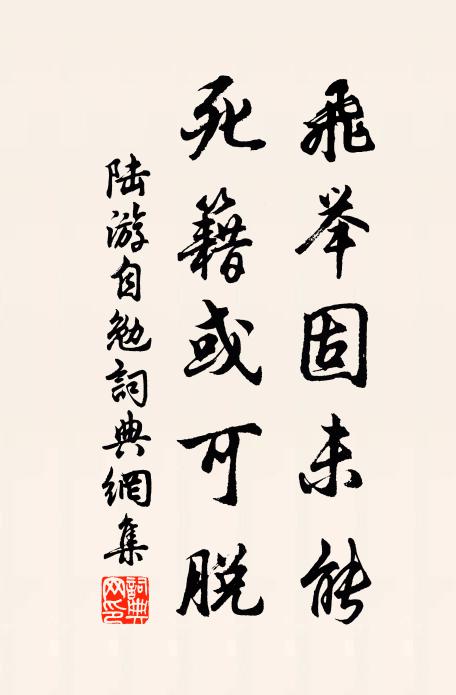 飛举固未能
死籍或可脱
陆游自勉詞典網集
詞典网印